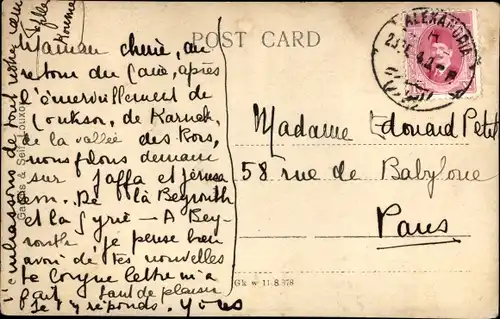 POST CARD
ALEXANDRIA
Maman chérie, au
retour du Caire, après
l'émerveillement de
Louksor, de Karnak,
de la vallée des Rois,
nous filons demain
sur Jaffa et Jérusa
lem. De là Beyrouth
et la Syrie - A Bey
routh je pense bien
avoir de tes nouvelles
ta longue lettre m'a
fait tant de plaisir
Je t'y réponds. Nous
t'embrassons de tout notre cœur
Madame Edouard Petit
58 rue de Babylone
Paris
Gaddis & Seif, Louxor
Gk w 11.8.378